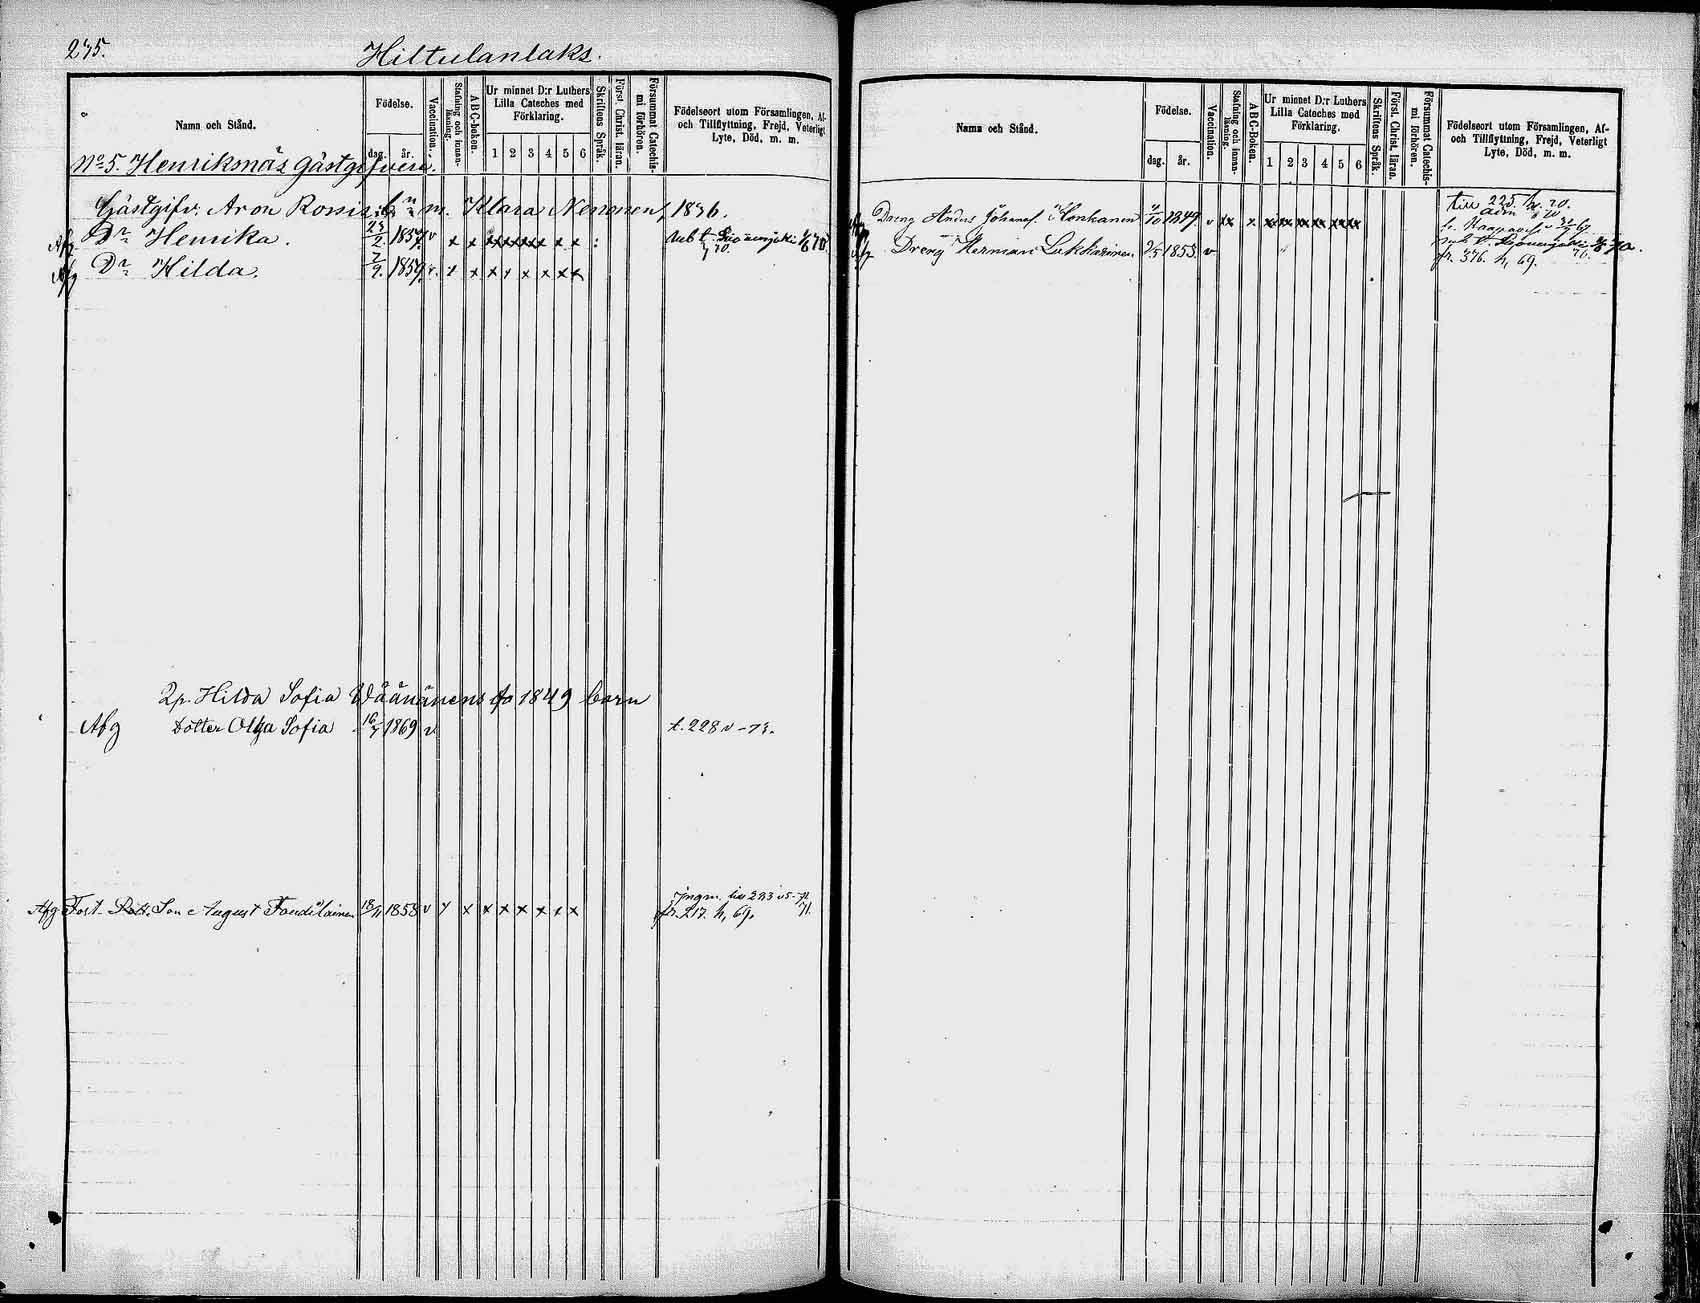 235.
Hiltulanlaks.
Namn och Stånd.
Födelse.
dag.
år.
Vaccination.
Stafning och innan-läsning.
ABC-boken.
Ur minnet D:r Luthers
Lilla Cateches med
Förklaring.
1 2 3 4 5 6
Skriftens Språk.
Först. Christ. läran.
Försummat Catechis-
mi förhören.
Födelseort utom Församlingen, Af-
och Tillflyttning, Frejd, Veterligt
Lyte, Död, m. m.
No 5. Henriksnäs Gästgifveri.
Gästgifv. Aron m. Klara Nenonen, 1836.
Afg Dr Henrika. 23/2. 1857 v x x x x x x x x x
Afg Dr Hilda. 7/9. 1859. v. x x x x x x x x
Hilda Sofia Väänänens fo 1849 barn
Afg Dotter Olga Sofia 16/7 1869 v t. 228 v -73.
Afg Fost. Son August 18/11 1858 v x x x x x x x x
fr. 217. h, 69.
Namn och Stånd.
Födelse.
dag.
år.
Vaccination.
Stafning och innan-läsning.
ABC-Boken.
Ur minnet D:r Luthers
Lilla Cateches med
Förklaring.
1 2 3 4 5 6
Skriftens Språk.
Först. Christ. läran.
Försummat Catechis-
mi förhören.
Födelseort utom Församlingen, Af-
och Tillflyttning, Frejd, Veterligt
Lyte, Död, m. m.
till 225.
Dreng Anders Johanss. Honkanen 1849. v
Dreng Herman 1853. v
fr. 376. h, 69.